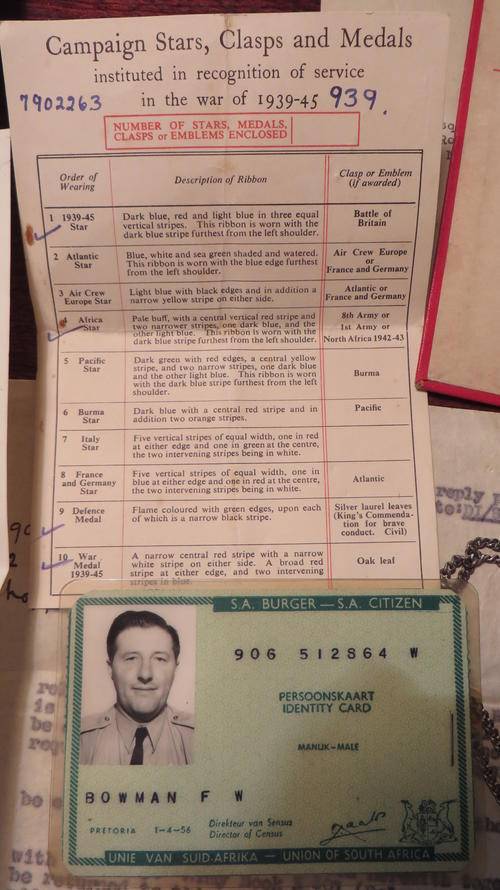 Campaign Stars, Clasps and Medals
instituted in recognition of service
7902263 in the war of 1939-45 939.
NUMBER OF STARS, MEDALS,
CLASPS or EMBLEMS ENCLOSED
Order of
Wearing
Description of Ribbon
Clasp or Emblem
(if awarded)
1 1939-45
Star
Dark blue, red and light blue in three equal
vertical stripes. This ribbon is worn with the
dark blue stripe furthest from the left shoulder.
Battle of
Britain
2 Atlantic
Star
Blue, white and sea green shaded and watered.
This ribbon is worn with the blue edge furthest
from the left shoulder.
Air Crew Europe
or
France and Germany
3 Air Crew
Europe Star
Light blue with black edges and in addition a
narrow yellow stripe on either side.
Atlantic or
France and Germany
4 Africa
Star
Pale buff, with a central vertical red stripe and
two narrower stripes, one dark blue, and the
other light blue. This ribbon is worn with the
dark blue stripe furthest from the left shoulder.
8th Army or
1st Army or
North Africa 1942-43
5 Pacific
Star
Dark green with red edges, a central yellow
stripe, and two narrow stripes, one dark blue
and the other light blue. This ribbon is worn
with the dark blue stripe furthest from the left
shoulder.
Burma
6 Burma
Star
Dark blue with a central red stripe and in
addition two orange stripes.
Pacific
7 Italy
Star
Five vertical stripes of equal width, one in red
at either edge and one in green at the centre,
the two intervening stripes being in white.
8 France
and Germany
Star
Five vertical stripes of equal width, one in
blue at either edge and one in red at the centre,
the two intervening stripes being in white.
Atlantic
9 Defence
Medal
Flame coloured with green edges, upon each
of which is a narrow black stripe.
Silver laurel leaves
(King's Commenda-
tion for brave
conduct. Civil)
10 War
Medal
1939-45
A narrow central red stripe with a narrow
white stripe on either side. A broad red
stripe at either edge, and two intervening
stripes in blue.
Oak leaf
reply
to:
be
be
with
be
S.A. BURGER — S.A. CITIZEN
906 512864 W
PERSOONSKAART
IDENTITY CARD
MANLIK—MALE
BOWMAN F W
PRETORIA 1-4-56
Direkteur van Sensus
Director of Census
UNIE VAN SUID-AFRIKA — UNION OF SOUTH AFRICA